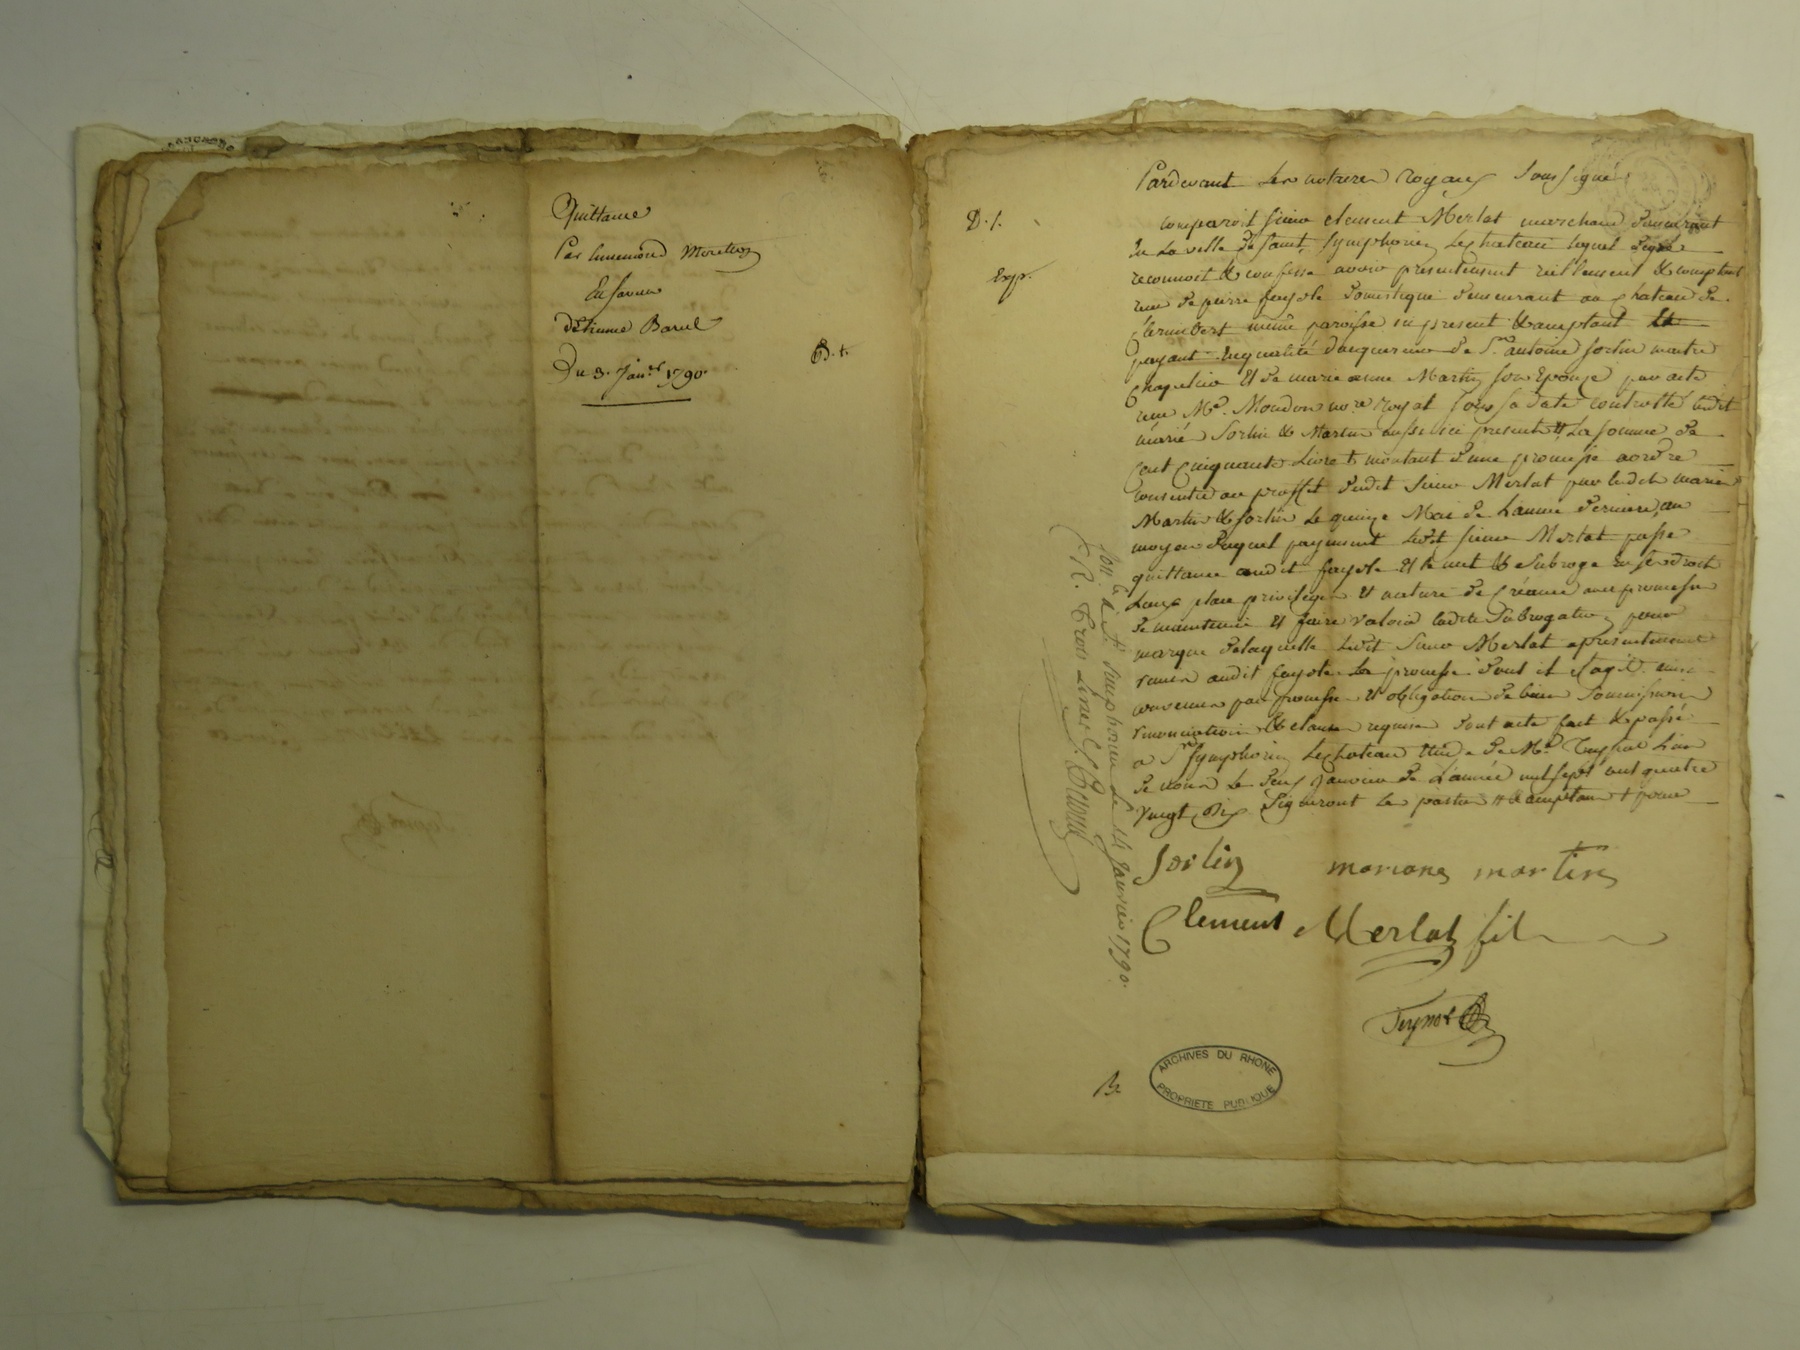 Quittance
Par Ennemond
En faveur
d'Etienne Barul
Du 3. Janer. 1790.
B. t.
D. t.
Exp.
Pardevant les notaires royaux soussigné
comparoit sieur clement Merlat marchand demeurant
en la ville de saint Symphorien lechateau lequel degré
reconnoit & confesse avoir presentement réellement & comptant
recu de pierre fayole domestique demeurant au chateau de
même paroisse ici present & acceptant
payant enqualité d'acquereur de Sr. antoine Sorlin maitre
chapelier et de marie anne Martin son Epouze par acte
recu Me. Moudon nore. royal sous sa date controllé lesdit
mariés Sorlin & Martin aussi ici presents la somme de
Cent Cinquante Livres montant d'une promesse a ordre
consentie au proffit dudit sieur Merlat par lesdits mariés
Martin & Sorlin le quinze Mai de Lannée derniere, au
moyen duquel payement ledit sieur Merlat passe
quittance audit fayole et le met & subroge en ses droits
Lieux place privileges et nature de créance avec promesse
de maintenir et faire valoir ladite Subrogation pour
marque delaquelle ledit sieur Merlat apresentement
remis audit fayole la promesse dont il s'agit. ainsi
convenu par promesse et obligation de biens soumissions
renonciation & clauses requises dont acte fait & passé
a St. Symphorien lechateau Etude de Me. Teynot L'un
de nous le deux janvier de L'année mil sept cent quatre
vingt dix Signeront les parties & acceptant
Sorlin mariane martin
Clement Merlat fils
Teynot
Con.lé à St. Simphorien le 14 Janvier 1790.
R. trois Livres
ARCHIVES DU RHONE
PROPRIETE PUBLIQUE